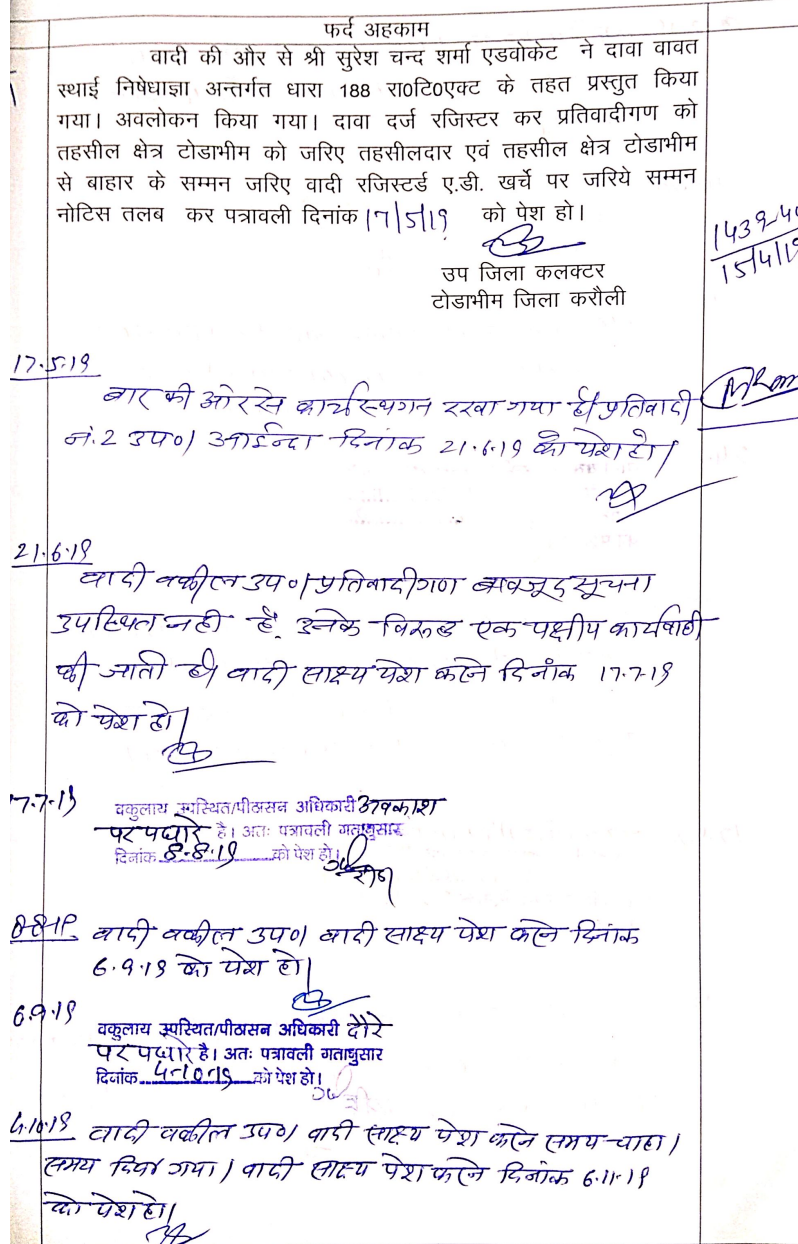 फर्द अहकाम
वादी की और से श्री सुरेश चन्द शर्मा एडवोकेट ने दावा वावत
स्थाई निषेधाज्ञा अन्तर्गत धारा 188 रा0टि0एक्ट के तहत प्रस्तुत किया
गया। अवलोकन किया गया। दावा दर्ज रजिस्टर कर प्रतिवादीगण को
तहसील क्षेत्र टोडाभीम को जरिए तहसीलदार एवं तहसील क्षेत्र टोडाभीम
से बाहार के सम्मन जरिए वादी रजिस्टर्ड ए.डी. खर्चे पर जरिये सम्मन
नोटिस तलब कर पत्रावली दिनांक 17/5/19 को पेश हो।
उप जिला कलक्टर
टोडाभीम जिला करौली
15/4/19
17.5.19
बार की ओर से कार्य स्थगन रखा गया है। प्रतिवादी
नं. 2 उप०। आईन्दा दिनांक 21.6.19 को पेश हो।
21.6.19
वादी वकील उप०। प्रतिवादीगण बावजूद सूचना
उपस्थित नही है, उनके विरूद्ध एक पक्षीय कार्यवाही
की जाती है। वादी साक्ष्य पेश करने दिनांक 17.7.19
को पेश हो।
17.7.19
वकुलाय उपस्थित/पीठासन अधिकारी अवकाश
पर पधारे है। अतः पत्रावली गतानुसार
दिनांक 8.8.19 को पेश हो।
8.8.19 वादी वकील उप०। वादी साक्ष्य पेश करने दिनांक
6.9.19 को पेश हो।
6.9.19
वकुलाय उपस्थित/पीठासन अधिकारी दौरे
पर पधारे है। अतः पत्रावली गतानुसार
दिनांक 4.10.19 को पेश हो।
4.10.19 वादी वकील उप०। वादी साक्ष्य पेश करने समय चाहा।
समय दिया गया। वादी साक्ष्य पेश करने दिनांक 6.11.19
को पेश हो।